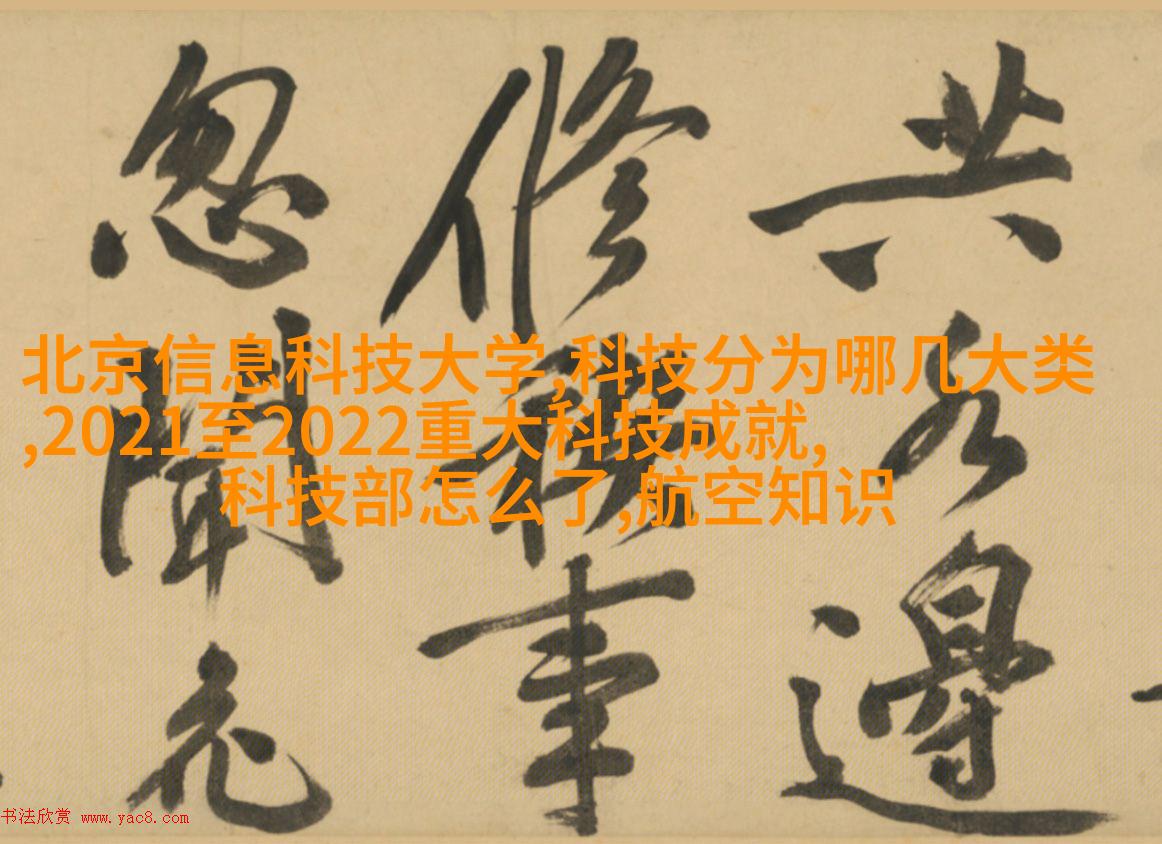 共水邊
修禊事
忽聞
北京信息科技大学,科技分为哪几大类
,2021至2022重大科技成就,
科技部怎么了,航空知识
书法欣赏 www.yac8.com